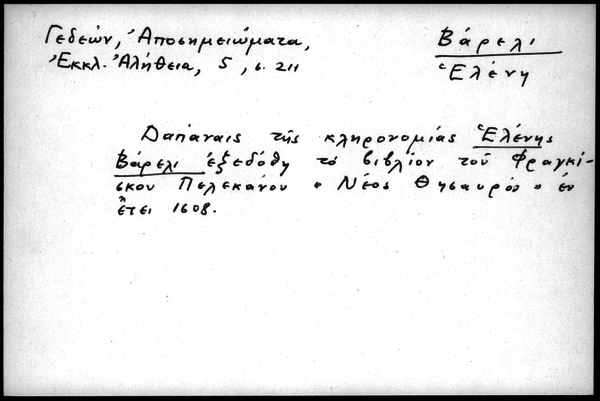 Γεδεών, Ἀποσημειώματα,
Ἐκκλ. Ἀλήθεια, 5, σ. 211
Βάρελι
Ἑλένη
Δαπάναις τῆς κληρονομίας Ἑλένης
Βάρελι ἐξεδόθη τὸ βιβλίον τοῦ Φραγκί-
σκου Πελεκάνου « Νέος Θησαυρός » ἐν
ἔτει 1608.